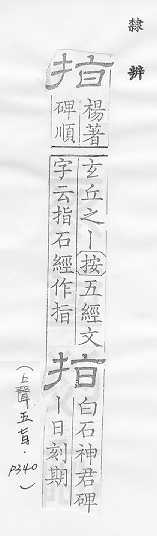 隸辨
指
楊著
碑順
玄丘之丨按五經文
字云指石經作指
指
白石神君碑
丨日刻期
(上聲.五旨.P340)